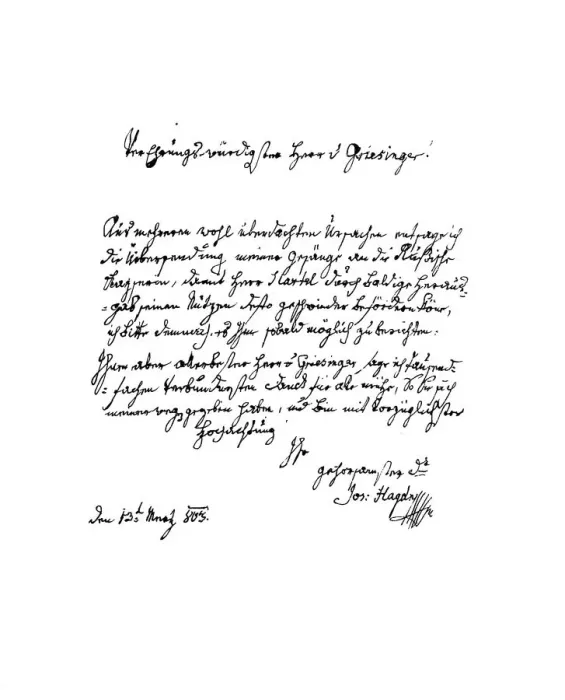 Verehrungswürdigster Herr v Griesinger!
Aus mehreren wohl überdachten Ursachen entsage ich
die Übersendung meiner Gesänge an die Rußische
Kayserin, damit Herr Härtel durch baldige Heraus-
=gab seinen Nutzen desto geschwinder befördern könne,
ich bitte demnach, es Ihm sobald möglich zu berichten:
Ihnen aber allerbester Herr v Griesinger sage ich tausend-
=fachen verbundnesten Danck für alle mühe, so Sie sich
meinerweg gegeben haben, und bin mit vorzüglichster
Hochachtung
Ihr
gehorsamster Dr
Jos: Haydn
den 13t Merz 803.